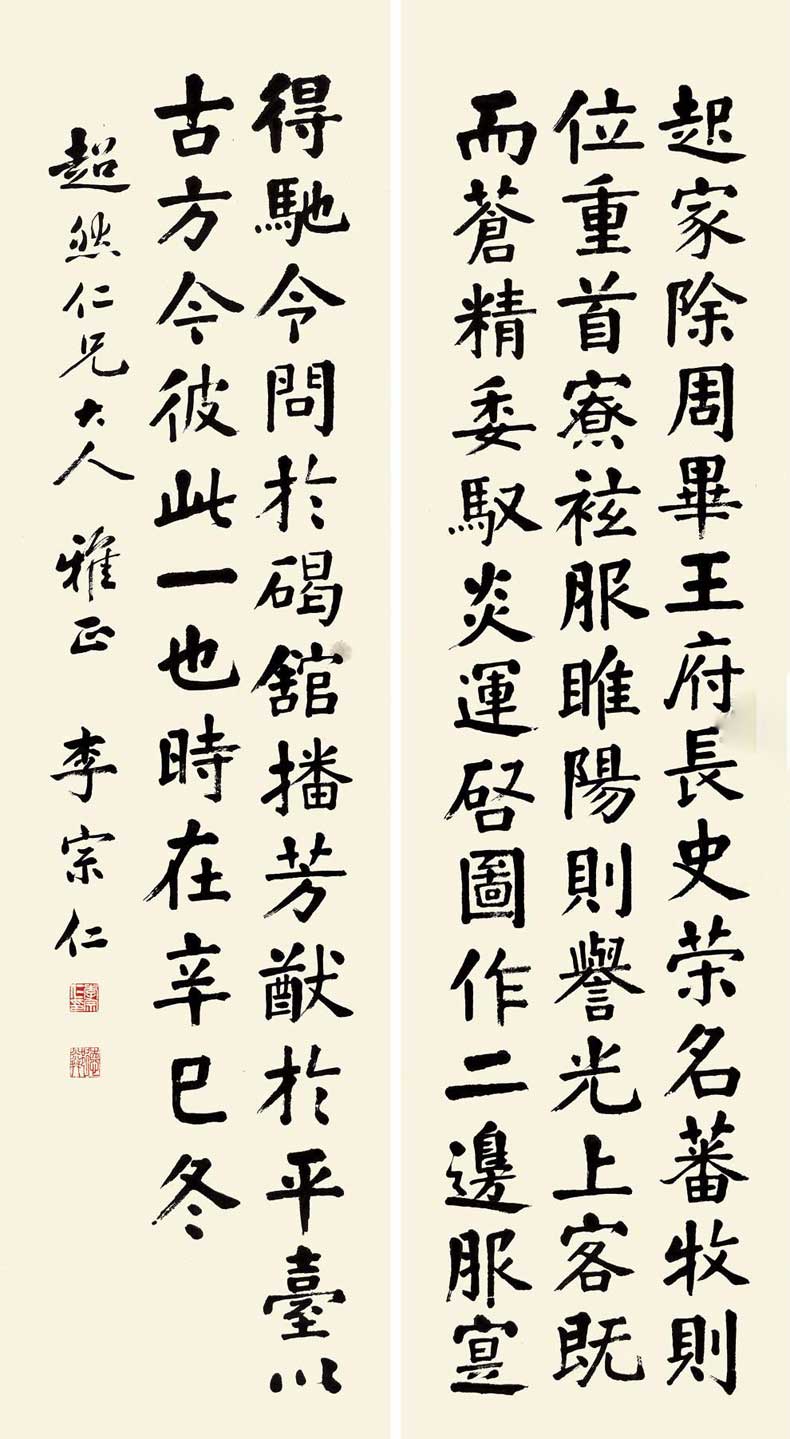 起家除周畢王府長史荣名蕃牧則
位重首寮袨服睢陽則譽光上客既
而蒼精委馭炎運啓圖作二邊服寔
得馳令問於碣舘播芳猷於平臺以
古方今彼此一也時在辛巳冬
超然仁兄大人雅正 李宗仁